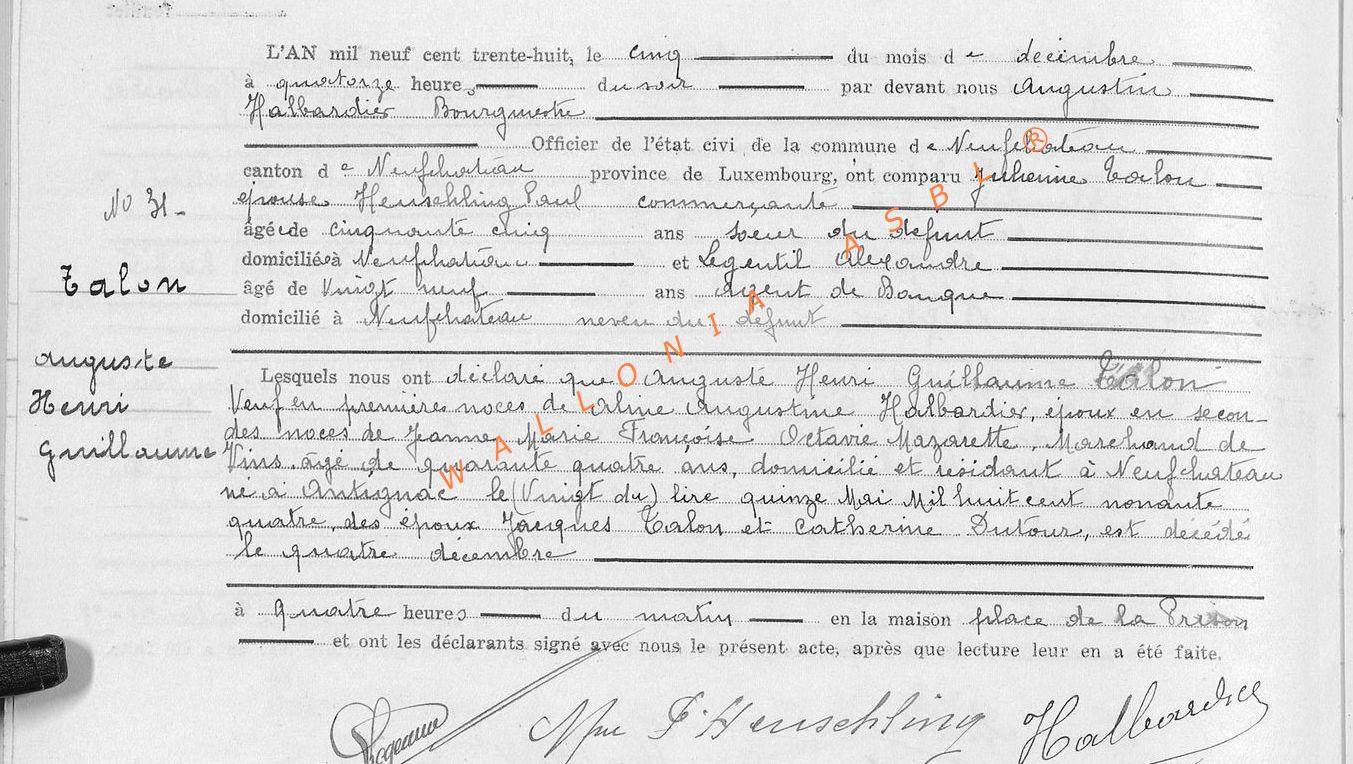 L'AN mil neuf cent trente-huit, le cinq du mois de decembre
à quatorze heures du soir par devant nous Augustin
Halbardier Bourgmestre
Officier de l'état civi de la commune de Neufchateau
canton de Neufchateau province de Luxembourg, ont comparu Julienne Talon
No 31 - épouse Heuschling Paul commerçante
âgée de cinquante cinq ans soeur du defunt
domiciliée à Neufchateau et Legentil Alexandre
Talon
âgé de Vingt neuf ans agent de Banque
domicilié à Neufchateau neveu du defunt
Auguste
Henri
Guillaume
Lesquels nous ont déclaré que Auguste Henri Guillaume Talon
Veuf en premières noces de Aline Augustine Halbardier, époux en secon-
des noces de Jeanne Marie Françoise Octavie Mazarette, Marchand de
Vins âgé de quarante quatre ans, domicilié et résidant à Neufchateau
né à Antignac le (Vingt du) lire quinze Mai Mil huit cent nonante
quatre, des époux Jacques Talon et Catherine Dutour, est décédé
le quatre décembre
à quatre heures du matin en la maison place de la Prison
et ont les déclarants signé avec nous le présent acte, après que lecture leur en a été faite.
Mme P. Heuschling Halbardier
WALLONIA ASBL ®